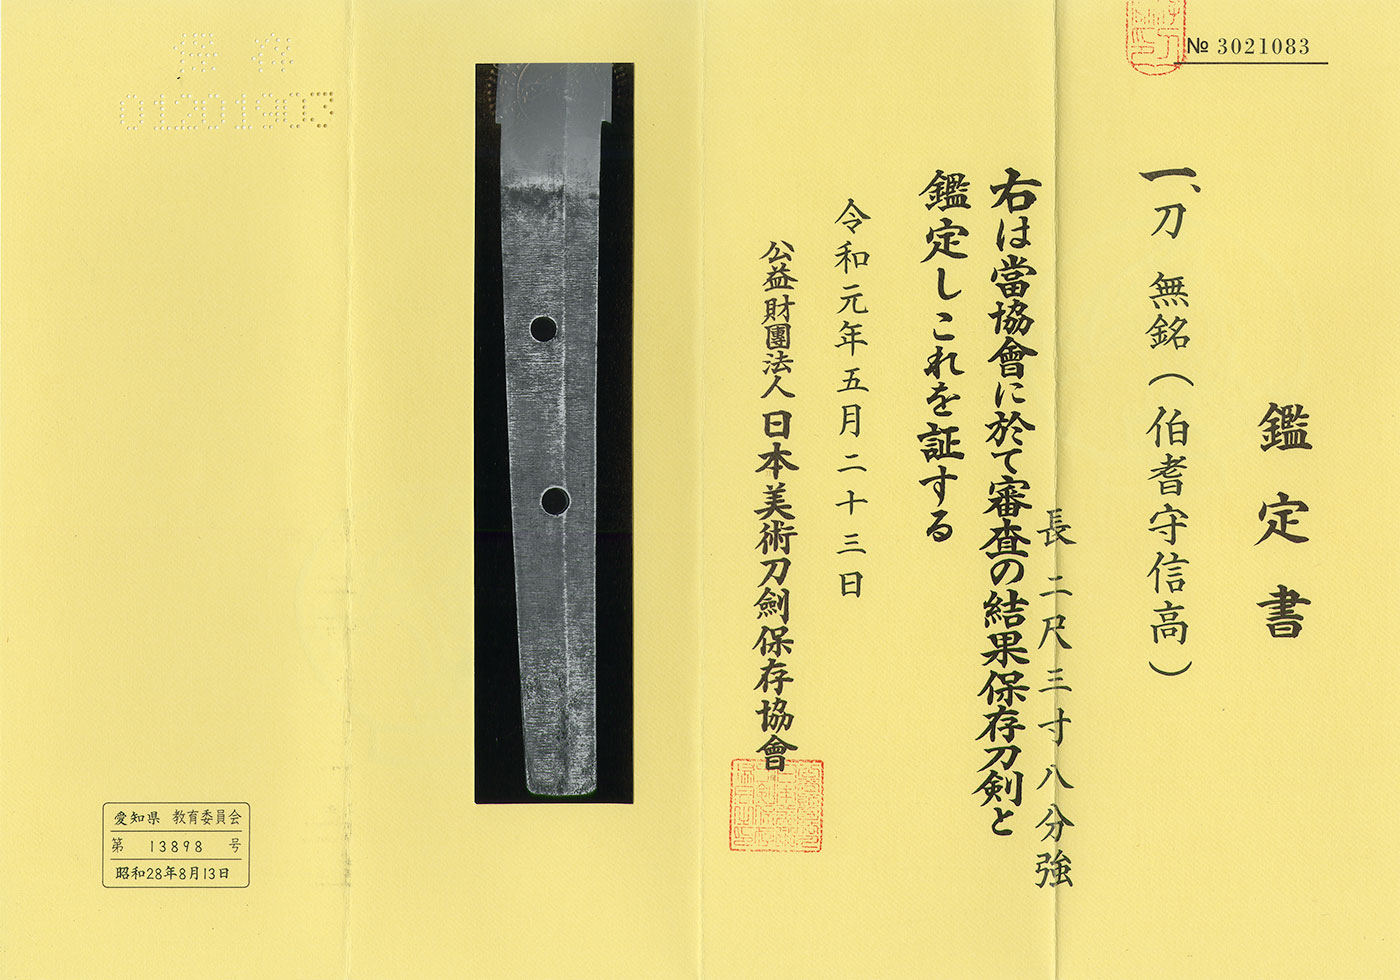 № 3021083
鑑定書
一、刀 無銘(伯耆守信高)
長 二尺三寸八分強
右は當協會に於て審査の結果保存刀剣と
鑑定しこれを証する
令和元年五月二十三日
公益財團法人 日本美術刀劍保存協會
保存
01201903
愛知県 教育委員会
第 13898 号
昭和28年8月13日